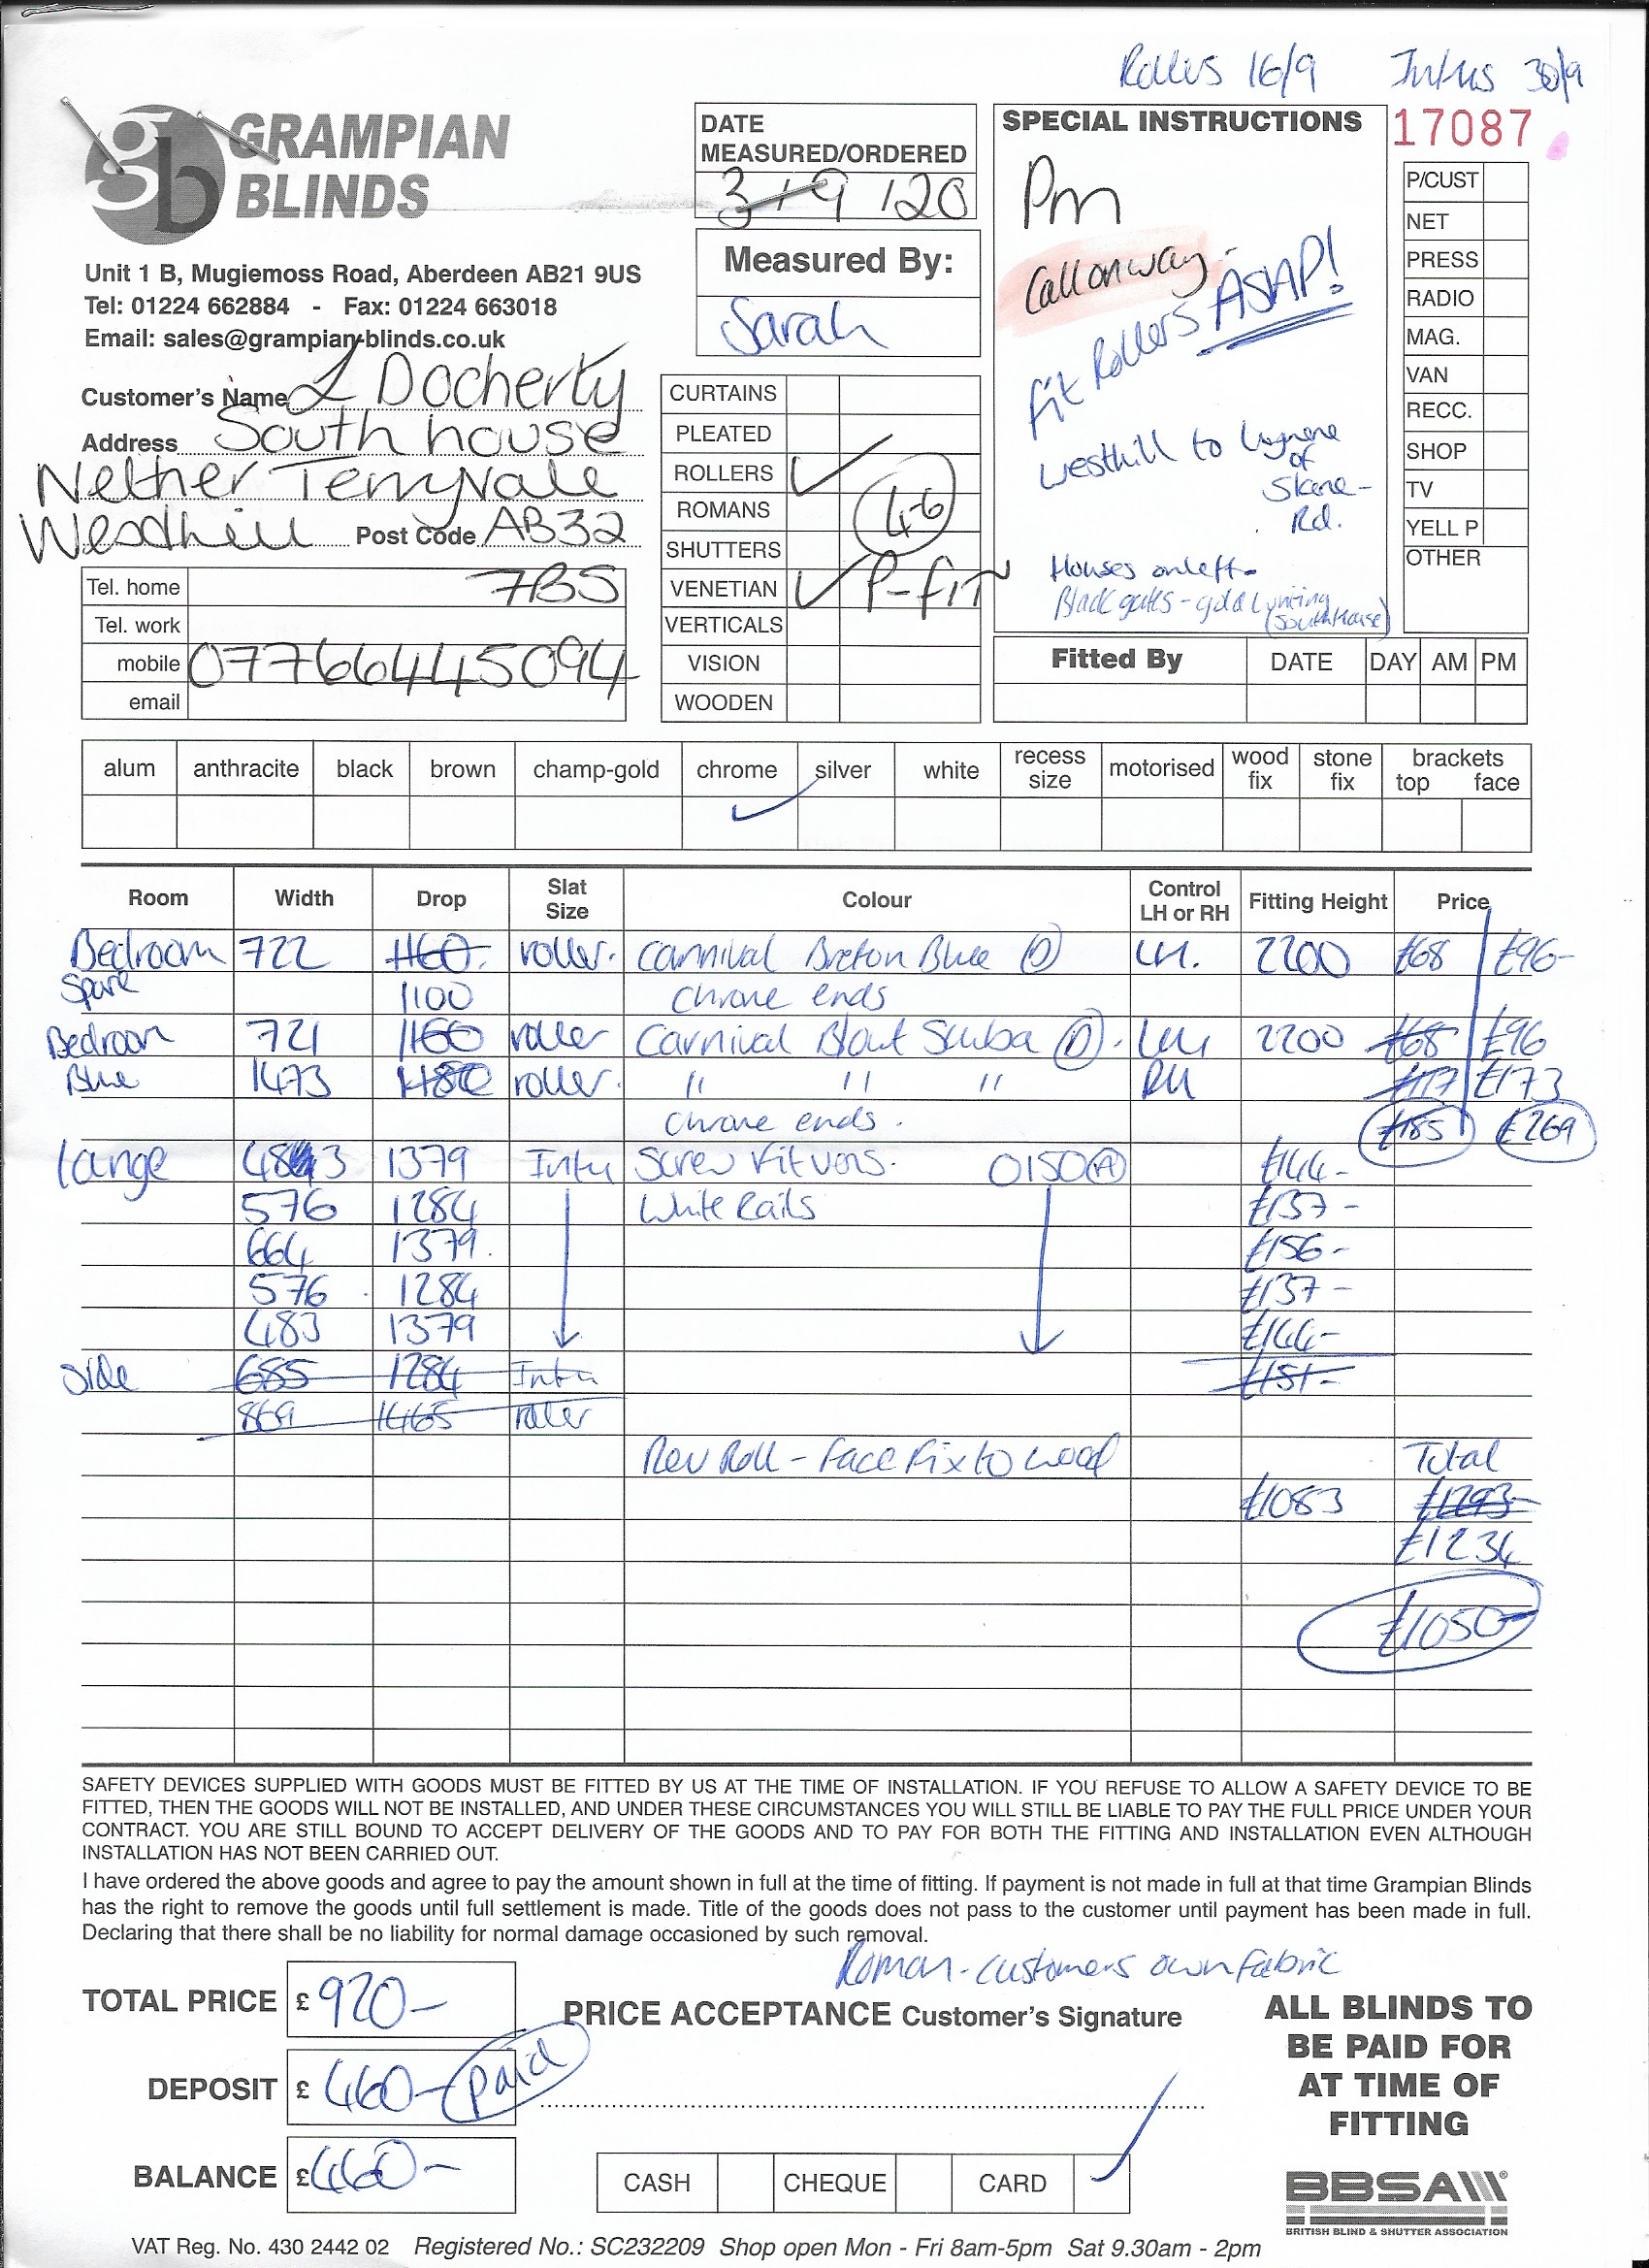 Rollers 16/9 Intus 30/9
GRAMPIAN
BLINDS
Unit 1 B, Mugiemoss Road, Aberdeen AB21 9US
Tel: 01224 662884 - Fax: 01224 663018
Email: sales@grampian-blinds.co.uk
Customer's Name L Docherty
Address South house
Nether Terryvale
Westhill Post Code AB32
Tel. home 7BS
Tel. work
mobile 07766445094
email
DATE
MEASURED/ORDERED
3/9/20
Measured By:
Sarah
CURTAINS
PLEATED
ROLLERS
ROMANS
SHUTTERS
VENETIAN P-fit
VERTICALS
VISION
WOODEN
4-6
SPECIAL INSTRUCTIONS
Pm
Call on way -
fit Rollers ASAP!
Westhill to Lyne
of
Skene
Rd.
Houses on left -
Black gates - gold writing
(South House)
17087
P/CUST
NET
PRESS
RADIO
MAG.
VAN
RECC.
SHOP
TV
YELL P
OTHER
Fitted By DATE DAY AM PM
alum anthracite black brown champ-gold chrome silver white recess size motorised wood fix stone fix brackets top face
Room Width Drop Slat Size Colour Control LH or RH Fitting Height Price
Bedroom 722 1160 roller. Carnival Breton Blue (D) LH. 2200 £68 £96-
Spare 1100 chrome ends
Bedroom 721 1160 roller Carnival Blout Scuba (D). LH 2200 £68 £96
Blue 1473 1180 roller. " " " RH £117 £173
chrome ends. £185 £269
Lounge 483 1379 Intu Screw Fit vens. 0150 (A) £144-
576 1284 White Rails £137-
664 1379 £156-
576 1284 £137-
483 1379 £144-
Side 685 1284 Intu £151-
869 1465 roller
Rev Roll - Face Fix to wood Total
£1083 £1293-
£1234
£1050-
SAFETY DEVICES SUPPLIED WITH GOODS MUST BE FITTED BY US AT THE TIME OF INSTALLATION. IF YOU REFUSE TO ALLOW A SAFETY DEVICE TO BE
FITTED, THEN THE GOODS WILL NOT BE INSTALLED, AND UNDER THESE CIRCUMSTANCES YOU WILL STILL BE LIABLE TO PAY THE FULL PRICE UNDER YOUR
CONTRACT. YOU ARE STILL BOUND TO ACCEPT DELIVERY OF THE GOODS AND TO PAY FOR BOTH THE FITTING AND INSTALLATION EVEN ALTHOUGH
INSTALLATION HAS NOT BEEN CARRIED OUT.
I have ordered the above goods and agree to pay the amount shown in full at the time of fitting. If payment is not made in full at that time Grampian Blinds
has the right to remove the goods until full settlement is made. Title of the goods does not pass to the customer until payment has been made in full.
Declaring that there shall be no liability for normal damage occasioned by such removal.
Roman - customers own fabric
TOTAL PRICE £ 920-
DEPOSIT £ 460- paid
BALANCE £ 460-
PRICE ACCEPTANCE Customer's Signature
CASH CHEQUE CARD
ALL BLINDS TO
BE PAID FOR
AT TIME OF
FITTING
BBSA
BRITISH BLIND & SHUTTER ASSOCIATION
VAT Reg. No. 430 2442 02 Registered No.: SC232209 Shop open Mon - Fri 8am-5pm Sat 9.30am - 2pm